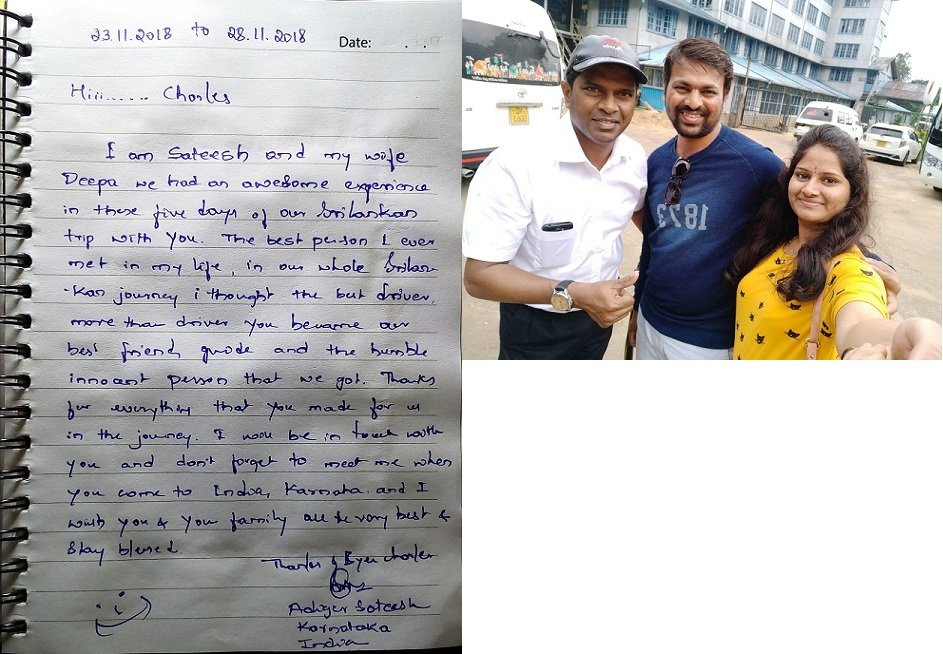 23.11.2018 to 28.11.2018
Date:
Hiii...... Charles
I am Sateesh and my wife
Deepa we had an awesome experience
in these five days of our Srilankan
trip with you. The best person I ever
met in my life, in our whole Srilan
-kan journey i thought the best driver,
more than driver you became our
best friend guide and the humble
innocent person that we got. Thanks
for everything that you made for us
in the journey. I will be in touch with
you and don't forget to meet me when
you come to India, Karnata. and I
wish you & your family all the very best &
Stay blessed
Thanks & Bye Charles
Sateesh
Karnataka
India
1873